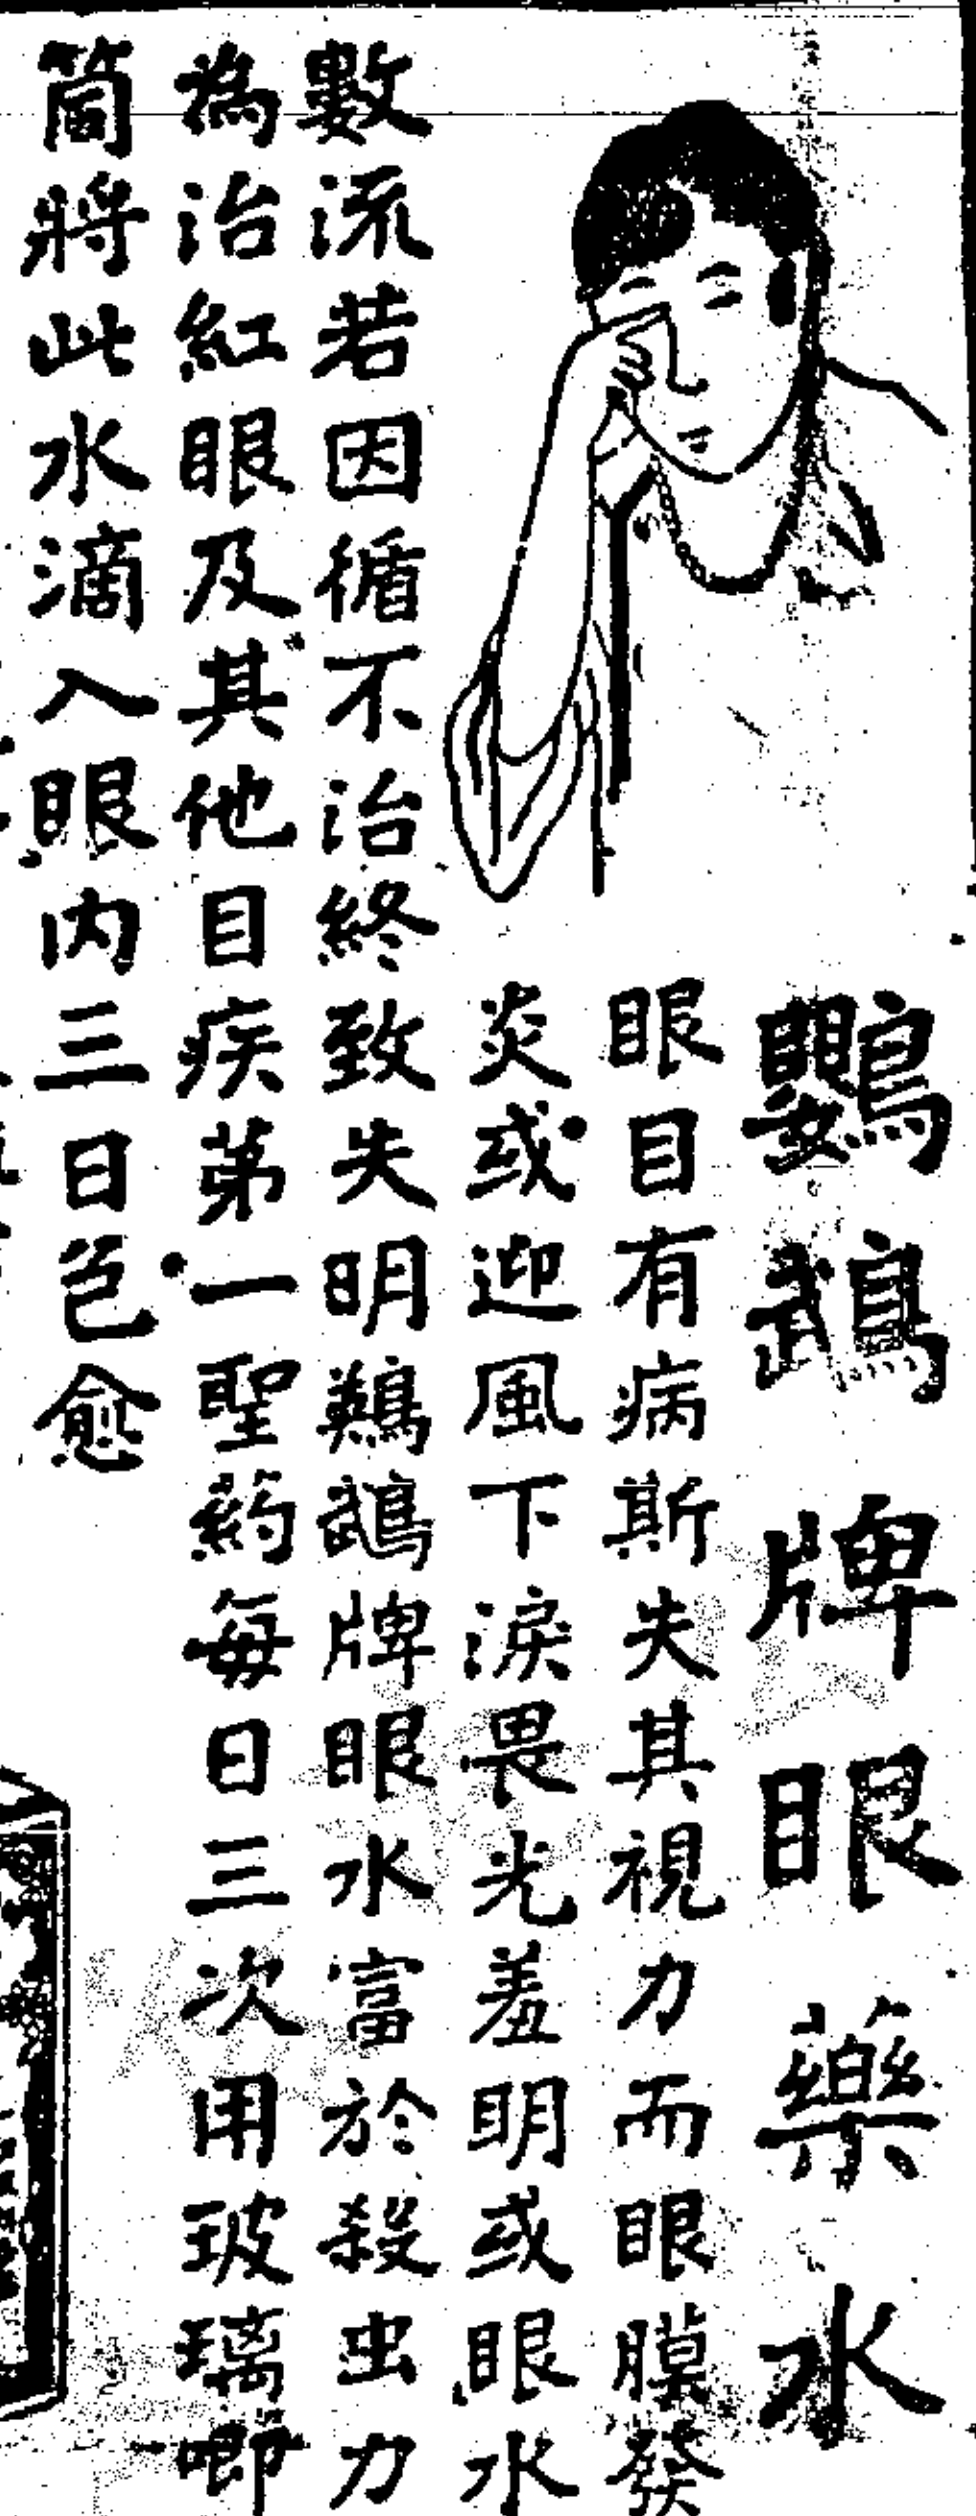 鸚鵡牌眼藥水
眼目有病斯失其視力而眼膜發
炎或迎風下淚畏光羞明或眼水
數流若因循不治終致失明鸚鵡牌眼水富於殺虫力
為治紅眼及其他目疾苐一聖葯每日三次用玻璃唧
筒將此水滴入眼內三日包愈